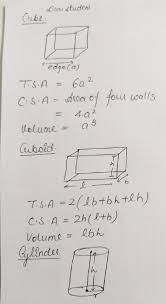 Dear student
Cube
edge(a)
T.S.A = 6a²
C.S.A = Area of four walls
= 4a²
Volume = a³
Cuboid
h
l
b
T.S.A = 2(lb+bh+lh)
C.S.A = 2h(l+b)
Volume = lbh
Cylinder
h
r